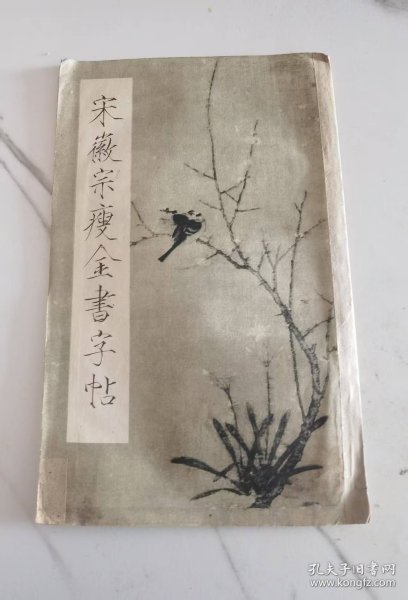 宋徽宗瘦金書字帖
孔夫子旧书网
www.kongfz.com